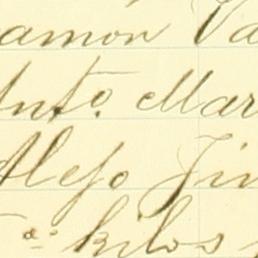 amon Va
Anto. Mar
Alejo Jim
a kilos